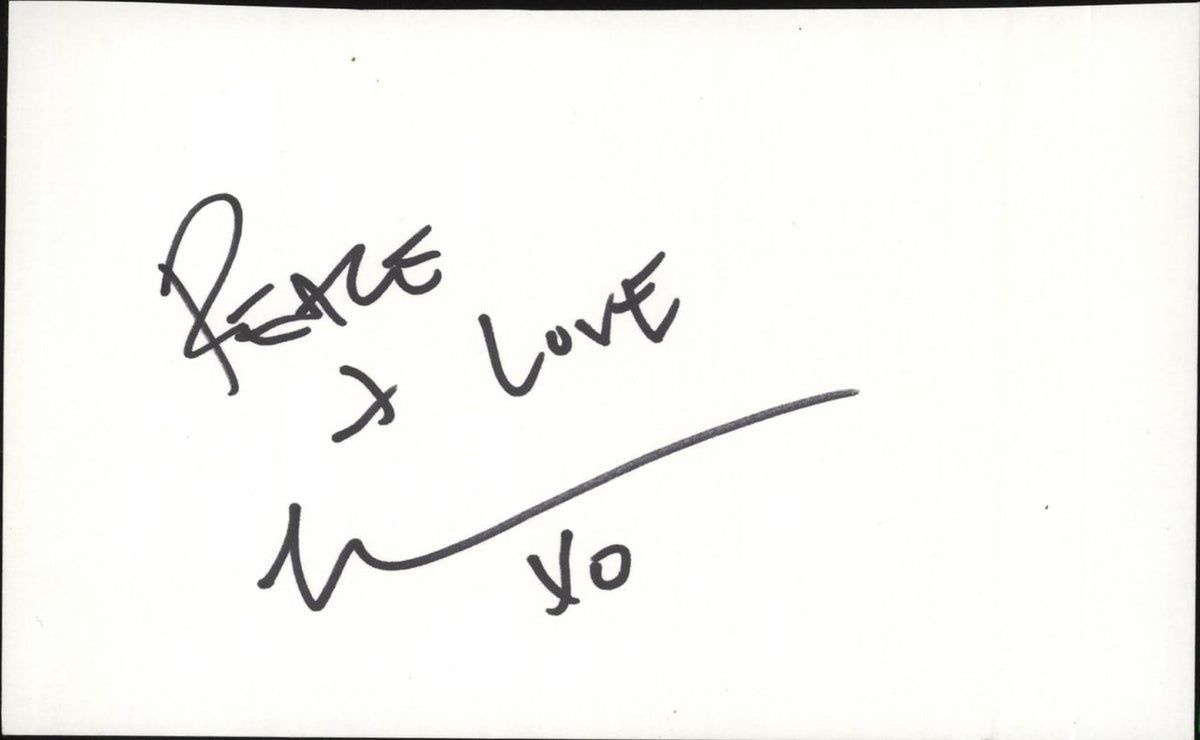 PEACE
x LOVE
XO